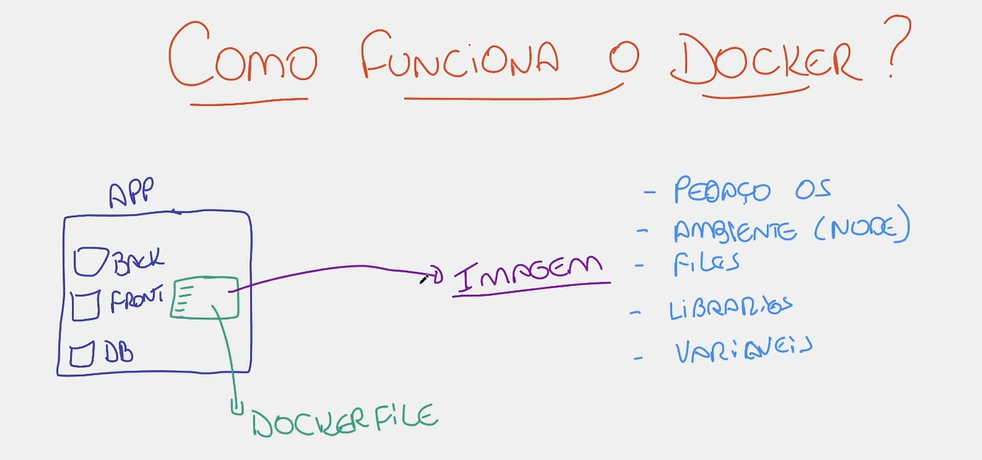 COMO FUNCIONA O DOCKER?
APP
BACK
FRONT
DB
DOCKERFILE
IMAGEM
- PEDAÇO OS
- AMBIENTE (NODE)
- FILES
- LIBRARIES
- VARIÁVEIS